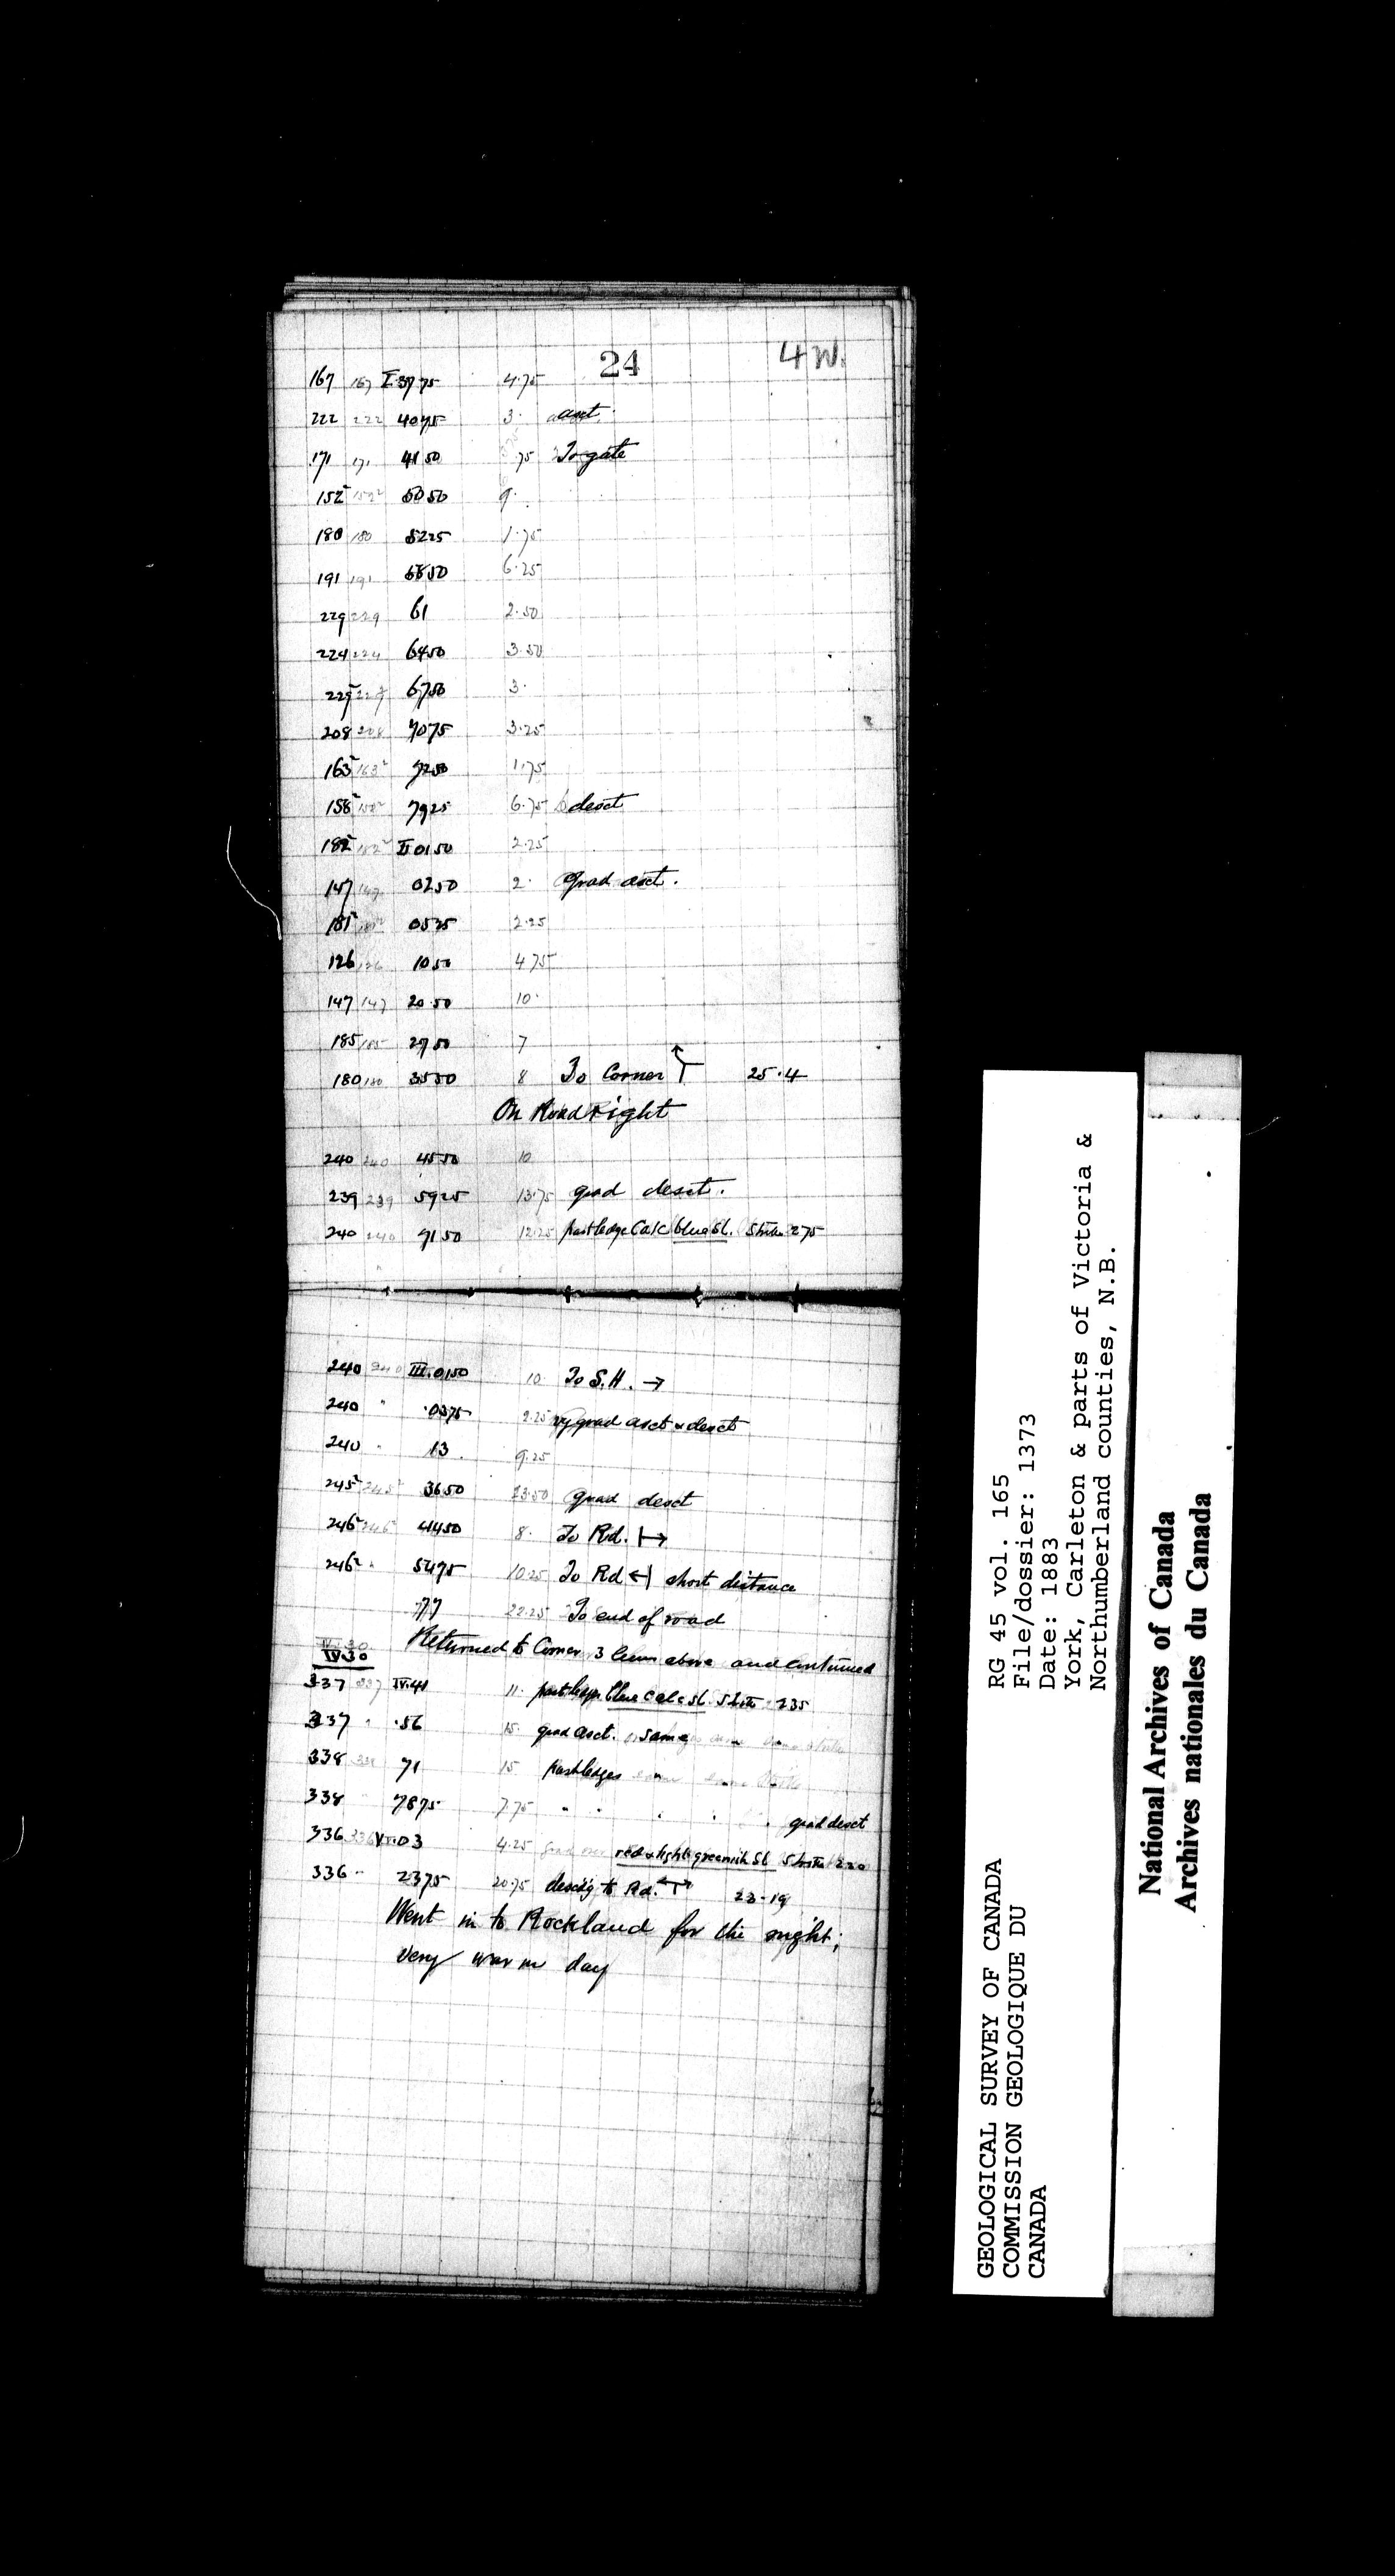 24 4 W.
167 167 I.3775 4.75
222 222 4075 3. asct.
171 171 4150 .75 To gate
152⁵ 152⁵ 5050 9.
180 180 5225 1.75
191 191 5850 6.25
229 229 61 2.50
224 224 6450 3.50
6750 3.
208 208 7075 3.25
163⁵ 163⁵ 7250 1.75
158⁵ 158⁵ 7925 6.75 desct
182⁵ 182⁵ II 0150 2.25
147 147 0350 2. Grad asct.
185 0575 2.25
126 126 1050 4.75
147 147 20.50 10.
185 185 2750 7
180 180 3550 8 To Corner 25.4
On Road Right
240 240 4550 10
239 239 5925 13.75 grad desct.
240 240 7150 12.25 past ledge Calc blue Sl. Strike 275
240 240 III.0150 10 To S.H. →
240 " .0375 2.25 vy grad asct & desct
240 " 13. 9.25
245⁵ 245⁵ 3650 23.50 Grad desct
246⁵ 246⁵ 4450 8. To Rd. |→
246⁵ " 5475 10.25 To Rd ←| short distance
77 22.25 To end of road
IV.30 Returned to Corner 3 lines above and continued
IV.30
337 337 IV.41 11. past ledge blue calc Sl. Strike 235
337 " .56 15. grad asct. same
338 338 71 15 past ledges same same Strike
338 7875 7.75 " " " " " grad desct
336 336 V.03 4.25 red & light greenish Sl Strike 220
336 " 2375 20.75 descdg to Rd. 23-19
Went in to Rockland for the night;
very warm day
RG 45 vol. 165
File/dossier: 1373
Date: 1883
York, Carleton & parts of Victoria &
Northumberland counties, N.B.
GEOLOGICAL SURVEY OF CANADA
COMMISSION GEOLOGIQUE DU
CANADA
National Archives of Canada
Archives nationales du Canada